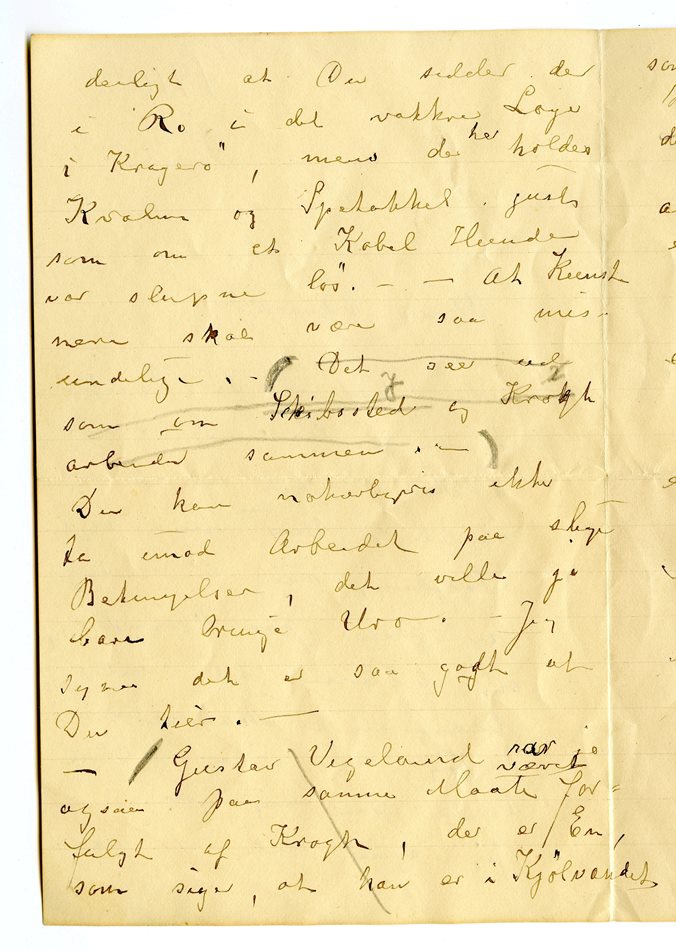 deiligt at Du sidder der
i Ro i det vakkre Loge
i Kragerø", mens der her holdes
Kvalm og Spetakkel. justs
som om et Kobel Hunde
var slupne løs". — — At Kunst
nere skal være saa mis-
undelige. — (Det seer ud
som om Schibosted og Krogh
arbeider sammen. —)
Du kan naturligvis ikke
ta imod Arbeidet paa slige
Betingelser, det ville jo
bare bringe Uro. — Jeg
synes det er saa godt at
Du tier. —
— Gustav Vigeland var jo
været
ogsaa paa samme Maate for=
fulgt af Krogh, der er En,
som siger, at han er i Kjölvandet